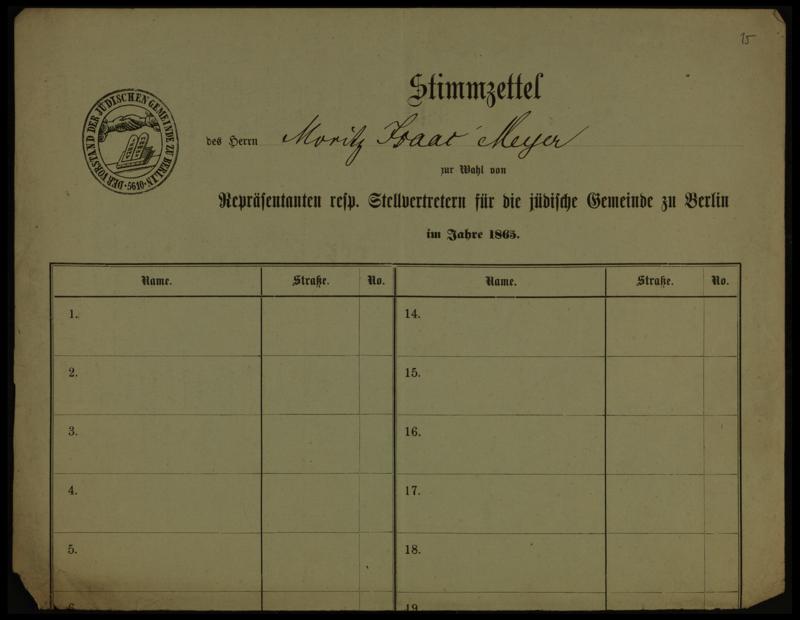 15
Stimmzettel
DER VORSTAND DER JÜDISCHEN GEMEINDE ZU BERLIN.
·5610·
des Herrn Moritz Isaac Meyer
zur Wahl von
Repräsentanten resp. Stellvertretern für die jüdische Gemeinde zu Berlin
im Jahre 1865.
Name. Straße. No. Name. Straße. No.
1. 14.
2. 15.
3. 16.
4. 17.
5. 18.
6 19